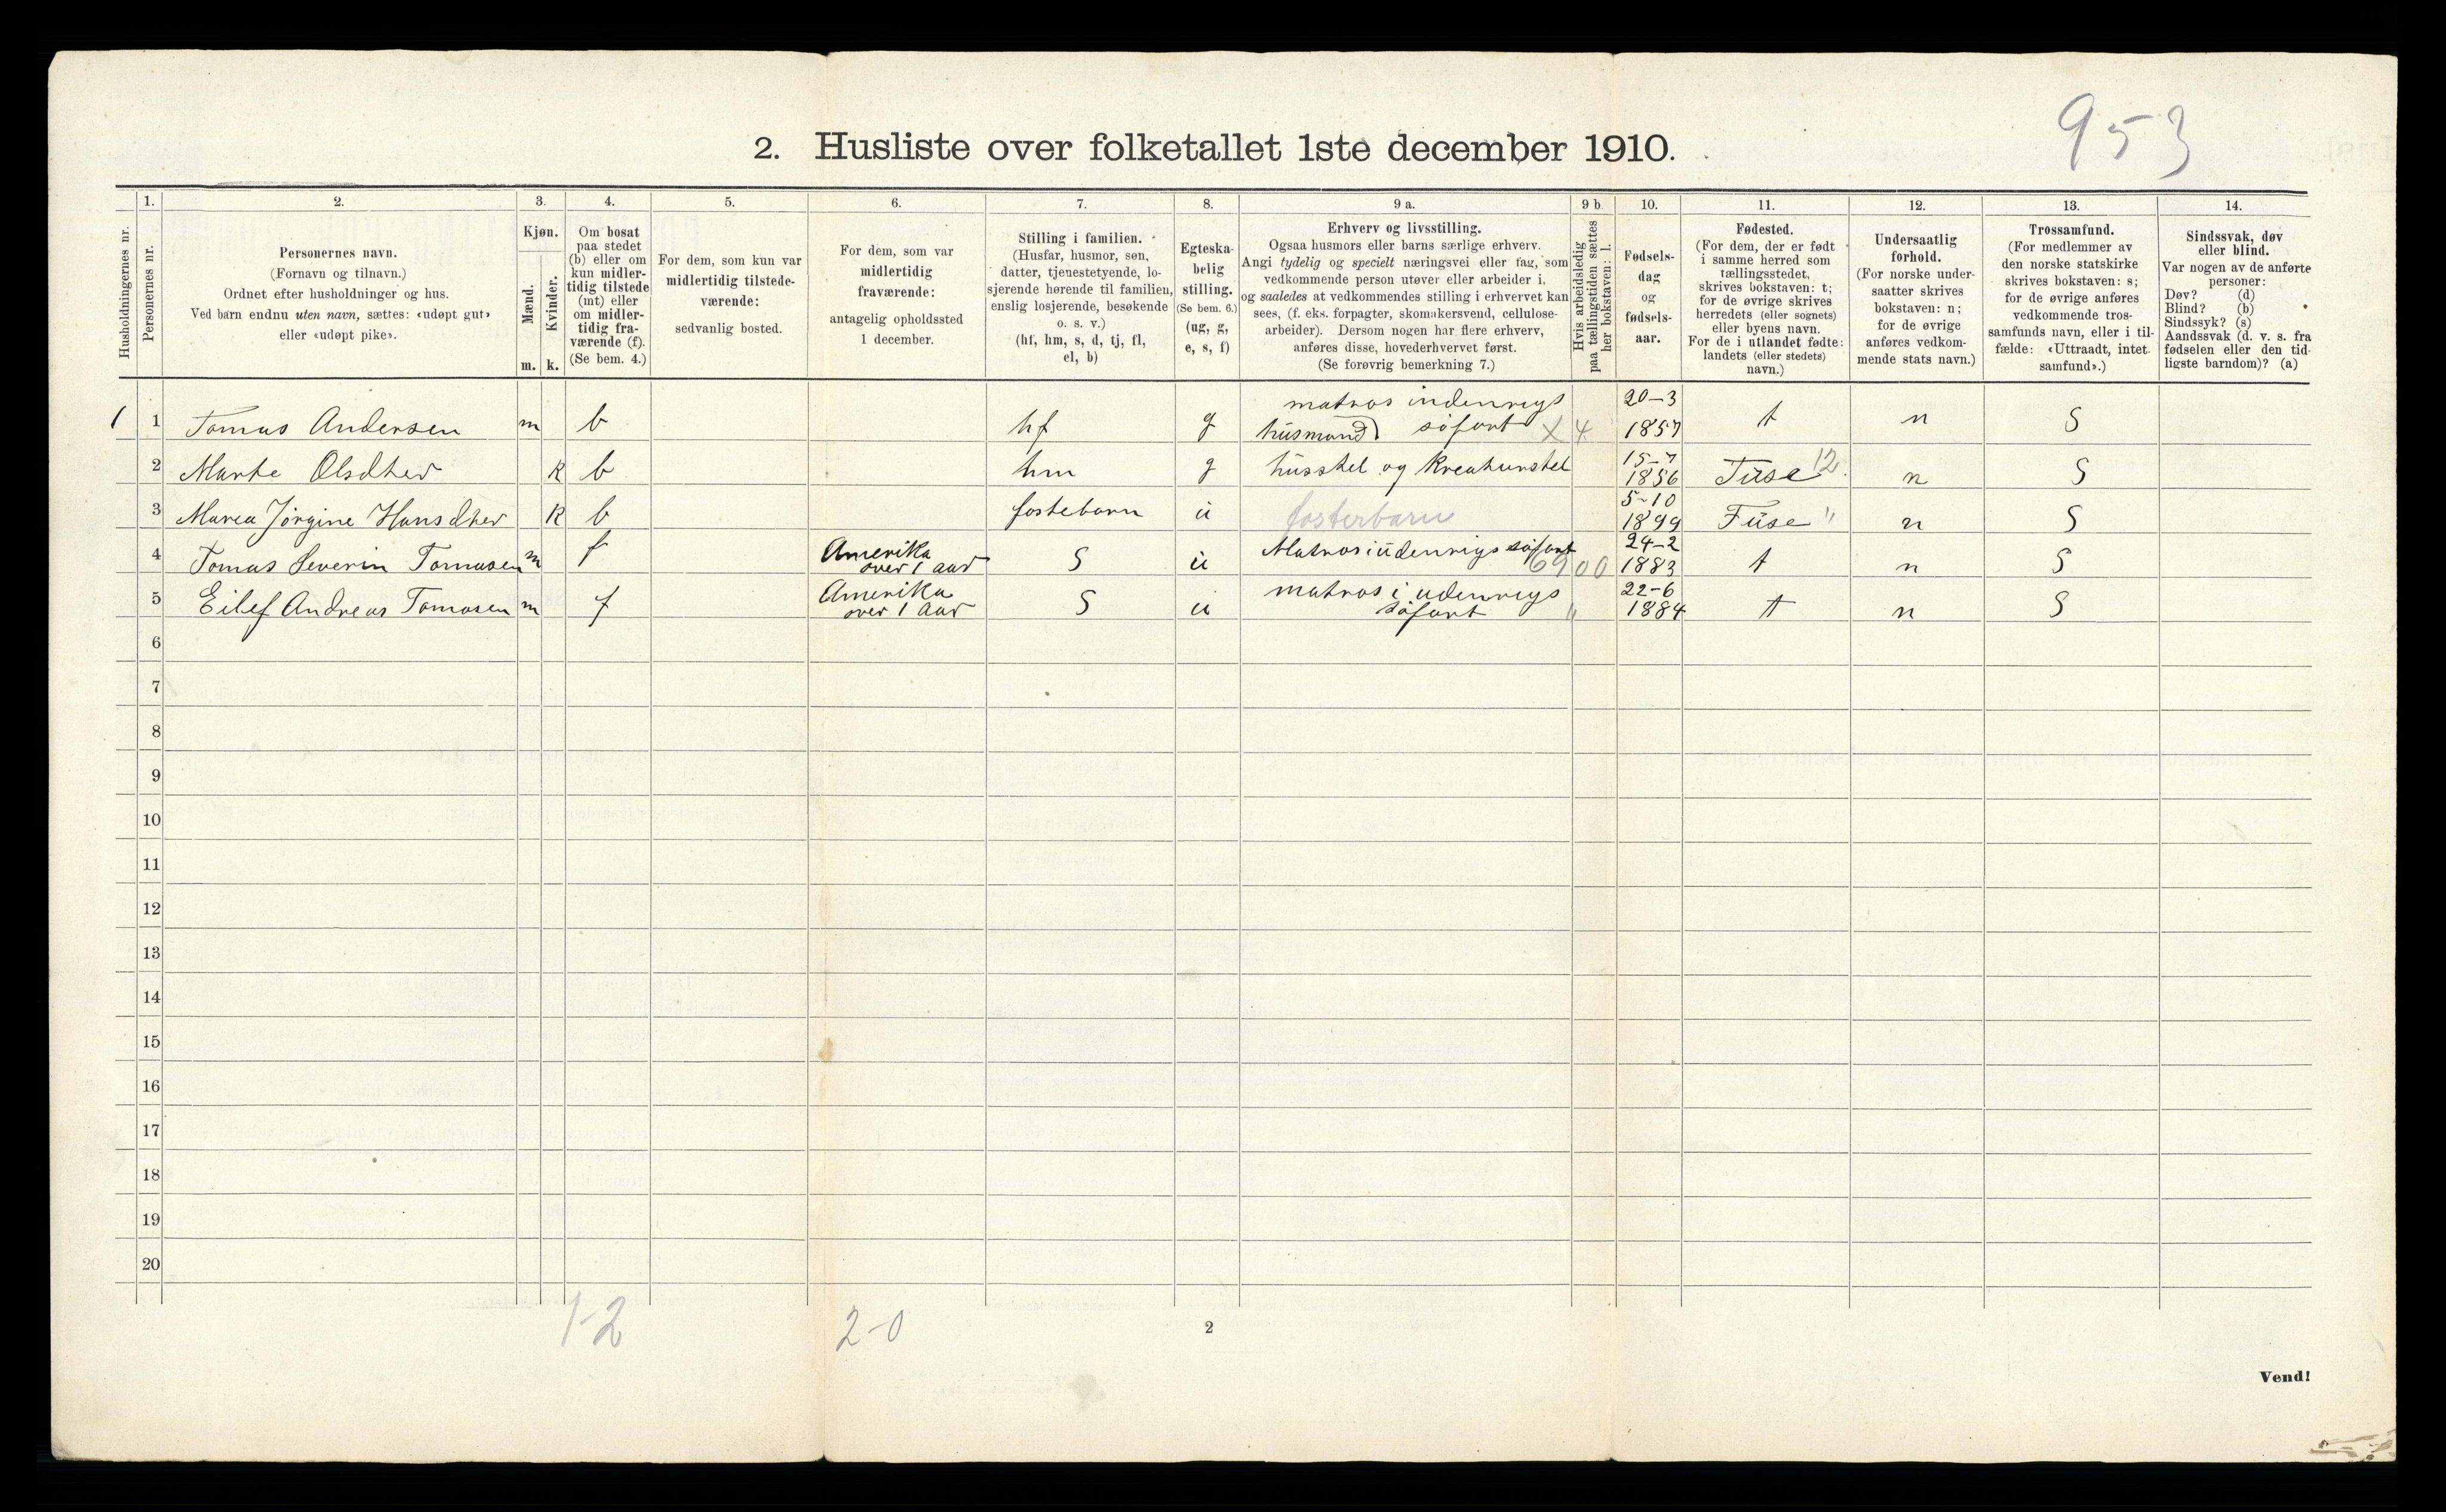 953
2. Husliste over folketallet 1ste december 1910.
Husholdningernes nr.
1.
Personernes nr.
2.
Personernes navn.
(Fornavn og tilnavn.)
Ordnet efter husholdninger og hus.
Ved barn endnu uten navn, sættes: «udøpt gut»
eller «udøpt pike».
3.
Kjøn.
Mænd.
Kvinder.
m. k.
4.
Om bosat
paa stedet
(b) eller om
kun midler-
tidig tilstede
(mt) eller
om midler-
tidig fra-
værende (f).
(Se bem. 4.)
5.
For dem, som kun var
midlertidig tilstede-
værende:
sedvanlig bosted.
6.
For dem, som var
midlertidig
fraværende:
antagelig opholdssted
1 december.
7.
Stilling i familien.
(Husfar, husmor, søn,
datter, tjenestetyende, lo-
sjerende hørende til familien,
enslig losjerende, besøkende
o. s. v.)
(hf, hm, s, d, tj, fl,
el, b)
8.
Egteska-
belig
stilling.
(Se bem. 6.)
(ug, g,
e, s, f)
9 a.
Erhverv og livsstilling.
Ogsaa husmors eller barns særlige erhverv.
Angi tydelig og specielt næringsvei eller fag, som
vedkommende person utøver eller arbeider i,
og saaledes at vedkommendes stilling i erhvervet kan
sees, (f. eks. forpagter, skomakersvend, cellulose-
arbeider). Dersom nogen har flere erhverv,
anføres disse, hovederhvervet først.
(Se forøvrig bemerkning 7.)
9 b
Hvis arbeidsledig
paa tællingstiden sættes
her bokstaven: l.
10.
Fødsels-
dag
og
fødsels-
aar.
11.
Fødested.
(For dem, der er født
i samme herred som
tællingsstedet,
skrives bokstaven: t;
for de øvrige skrives
herredets (eller sognets)
eller byens navn.
For de i utlandet fødte:
landets (eller stedets)
navn.)
12.
Undersaatlig
forhold.
(For norske under-
saatter skrives
bokstaven: n;
for de øvrige
anføres vedkom-
mende stats navn.)
13.
Trossamfund.
(For medlemmer av
den norske statskirke
skrives bokstaven: s;
for de øvrige anføres
vedkommende tros-
samfunds navn, eller i til-
fælde: «Uttraadt, intet
samfund».)
14.
Sindssvak, døv
eller blind.
Var nogen av de anførte
personer:
Døv? (d)
Blind? (b)
Sindssyk? (s)
Aandssvak (d. v. s. fra
fødselen eller den tid-
ligste barndom)? (a)
1 1 Tomas Andersen m b hf g matros indenrigs
husmand søfart X 4 20-3
1857 t n S
2 Marte Olsdter K b hm g husstel og Kreaturstel 15-7
1856 Fuse 12 n S
3 Marea Jørgine Hansdter K b fostebarn u fosterbarn 5-10
1899 Fuse " n S
4 Tomas Severin Tomasen m f Amerika
over 1 aar S u Matros i udenrigs søfart
6900 24-2
1883 t n S
5 Eilef Andreas Tomasen m f Amerika
over 1 aar S u matros i udenrigs
søfart " 22-6
1884 t n S
6
7
8
9
10
11
12
13
14
15
16
17
18
19
20
1-2
2-0
2
Vend!